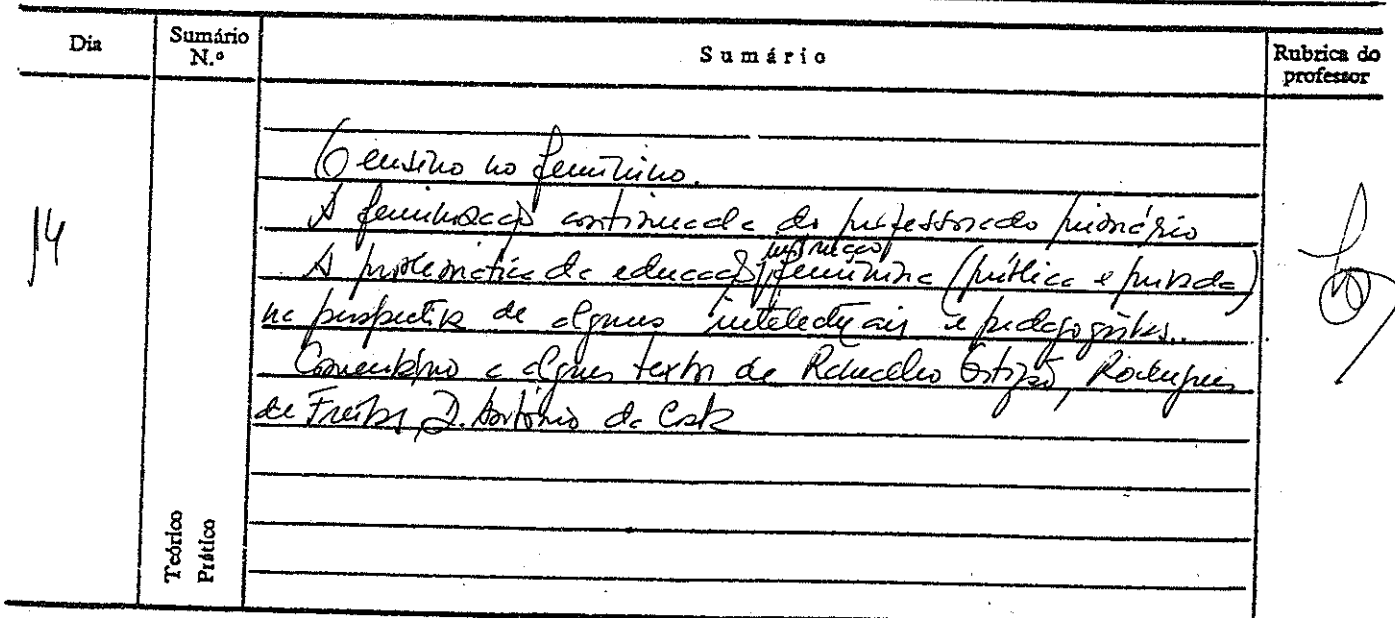 Dia
Sumário N.º
Sumário
Rubrica do professor
14
O ensino no feminino.
A feminização continuada do professorado primário
A problemática da educação/instrução feminina (pública e privada)
na perspectiva de alguns intelectuais e pedagogistas.
Comentário a alguns textos de Ramalho Ortigão, Rodrigues
de Freitas, D. António da Costa
Teórico
Prático